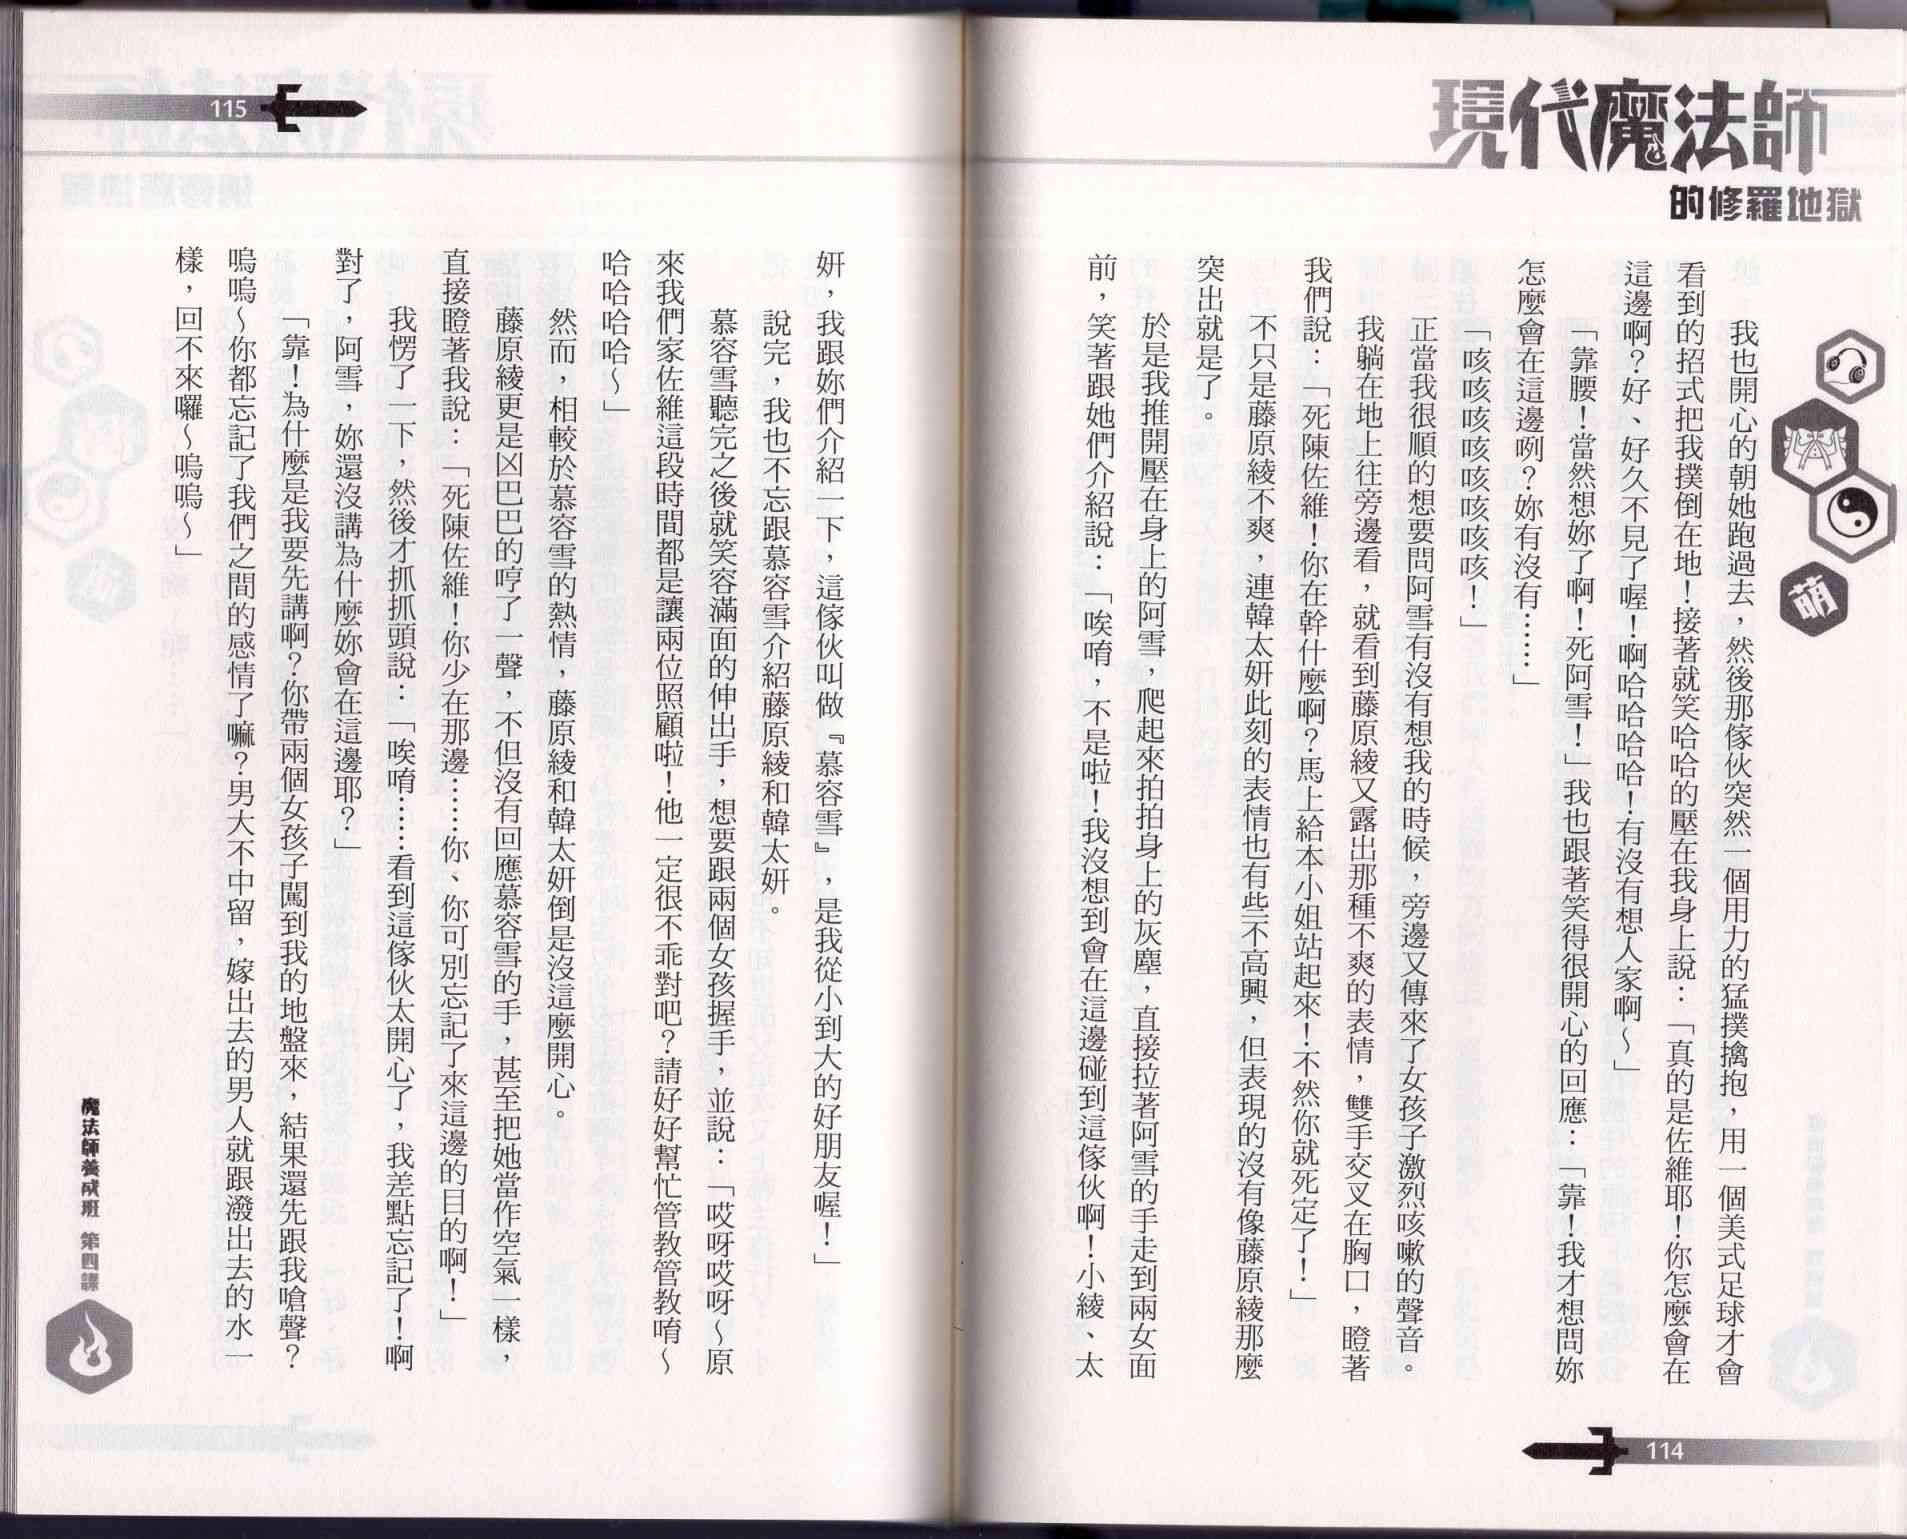 現代魔法師
的修羅地獄
萌
我也開心的朝她跑過去，然後那傢伙突然一個用力的猛撲擒抱，用一個美式足球才會
看到的招式把我撲倒在地！接著就笑哈哈的壓在我身上說：「真的是佐維耶！你怎麼會在
這邊啊？好、好久不見了喔！啊哈哈哈哈哈！有沒有想人家啊～」
「靠腰！當然想妳了啊！死阿雪！」我也跟著笑得很開心的回應：「靠！我才想問妳
怎麼會在這邊咧？妳有沒有……」
「咳咳咳咳咳咳咳咳！」
正當我很順的想要問阿雪有沒有想我的時候，旁邊又傳來了女孩子激烈咳嗽的聲音。
我躺在地上往旁邊看，就看到藤原綾又露出那種不爽的表情，雙手交叉在胸口，瞪著
我們說：「死陳佐維！你在幹什麼啊？馬上給本小姐站起來！不然你就死定了！」
不只是藤原綾不爽，連韓太妍此刻的表情也有些不高興，但表現的沒有像藤原綾那麼
突出就是了。
於是我推開壓在身上的阿雪，爬起來拍拍身上的灰塵，直接拉著阿雪的手走到兩女面
前，笑著跟她們介紹說：「唉唷，不是啦！我沒想到會在這邊碰到這傢伙啊！小綾、太
114
115
妍，我跟妳們介紹一下，這傢伙叫做『慕容雪』，是我從小到大的好朋友喔！」
說完，我也不忘跟慕容雪介紹藤原綾和韓太妍。
慕容雪聽完之後就笑容滿面的伸出手，想要跟兩個女孩握手，並說：「哎呀哎呀～原
來我們家佐維這段時間都是讓兩位照顧啦！他一定很不乖對吧？請好好幫忙管教管教唷～
哈哈哈哈～」
然而，相較於慕容雪的熱情，藤原綾和韓太妍倒是沒這麼開心。
藤原綾更是凶巴巴的哼了一聲，不但沒有回應慕容雪的手，甚至把她當作空氣一樣，
直接瞪著我說：「死陳佐維！你少在那邊……你、你可別忘記了來這邊的目的啊！」
我愣了一下，然後才抓抓頭說：「唉唷……看到這傢伙太開心了，我差點忘記了！啊
對了，阿雪，妳還沒講為什麼妳會在這邊耶？」
「靠！為什麼是我要先講啊？你帶兩個女孩子闖到我的地盤來，結果還先跟我嗆聲？
嗚嗚～你都忘記了我們之間的感情了嘛？男大不中留，嫁出去的男人就跟潑出去的水一
樣，回不來囉～嗚嗚～」
魔法師養成班 第四課